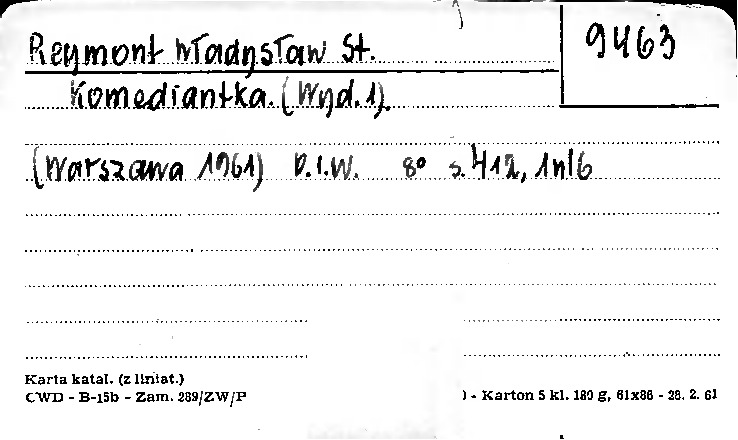 Reymont Władysław St.
9463
Komediantka. (Wyd. 1).
(Warszawa 1961) P.I.W. 8° s. 412, 1nlb
Karta katal. (z liniat.)
CWD - B-15b - Zam. 289/ZW/P
) - Karton 5 kl. 180 g, 61x86 - 28. 2. 61